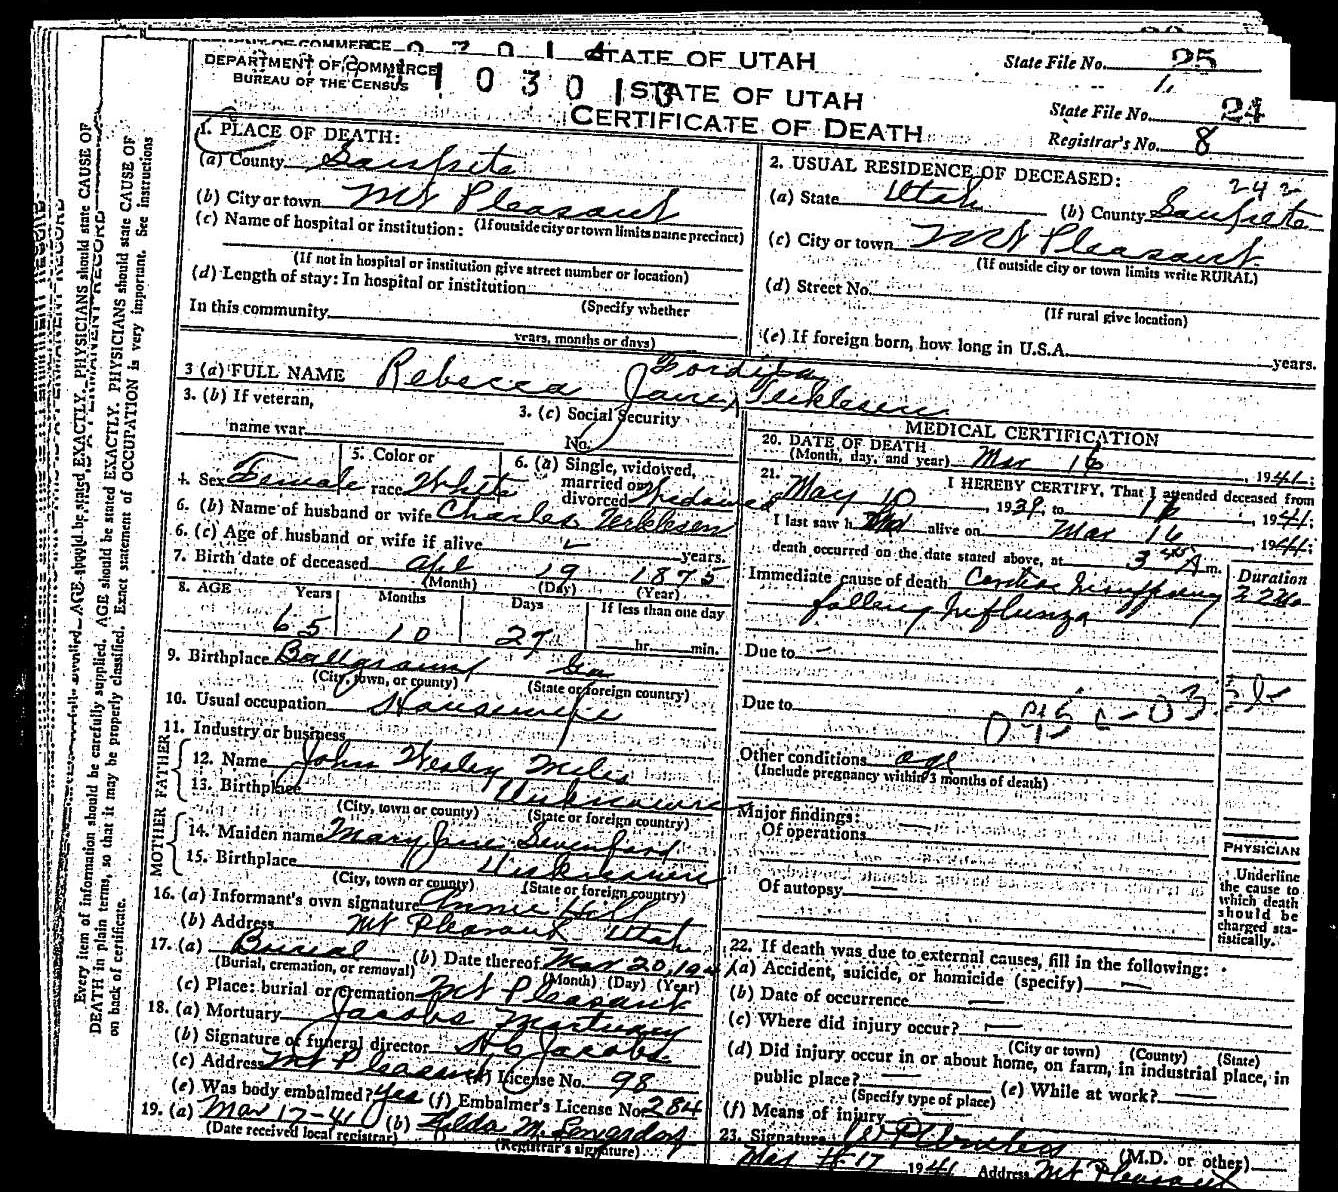 STATE OF UTAH
State File No. 25
DEPARTMENT OF COMMERCE
BUREAU OF THE CENSUS
STATE OF UTAH
CERTIFICATE OF DEATH
State File No. 24
Registrar's No. 8
1. PLACE OF DEATH:
(a) County Sanpete
(b) City or town Mt Pleasant
(If outside city or town limits name precinct)
(c) Name of hospital or institution:
(If not in hospital or institution give street number or location)
(d) Length of stay: In hospital or institution
(Specify whether
In this community
years, months or days)
2. USUAL RESIDENCE OF DECEASED:
242
(a) State Utah (b) County Sanpete
(c) City or town Mt Pleasant
(If outside city or town limits write RURAL)
(d) Street No.
(If rural give location)
(e) If foreign born, how long in U.S.A. years.
3 (a) FULL NAME Rebecca Jane Terklesen
3. (b) If veteran,
name war
3. (c) Social Security
No.
4. Sex Female
5. Color or
race White
6. (a) Single, widowed,
married or
divorced Widowed
6. (b) Name of husband or wife Charles Terklesen
6. (c) Age of husband or wife if alive years.
7. Birth date of deceased Apl 19 1875
(Month) (Day) (Year)
8. AGE Years Months Days If less than one day
65 10 27 hr. min.
9. Birthplace Ballground Ga
(City, town, or county) (State or foreign country)
10. Usual occupation Housewife
11. Industry or business
FATHER
12. Name John Wesley Miles
13. Birthplace Unknown
(City, town or county) (State or foreign country)
MOTHER
14. Maiden name Mary Jane
15. Birthplace Unknown
(City, town or county) (State or foreign country)
16. (a) Informant's own signature Annie Hill
(b) Address Mt Pleasant Utah
17. (a) Burial (b) Date thereof Mar 20, 194
(Burial, cremation, or removal) (Month) (Day) (Year)
(c) Place: burial or cremation Mt Pleasant
18. (a) Mortuary Jacobs Mortuary
(b) Signature of funeral director H C Jacobs
(c) Address Mt Pleasant (d) License No. 98
(e) Was body embalmed? Yes (f) Embalmer's License No. 284
19. (a) Mar 17-41 (b) Hilda M.
(Date received local registrar) (Registrar's signature)
MEDICAL CERTIFICATION
20. DATE OF DEATH
(Month, day, and year) Mar 16, 1941;
21. I HEREBY CERTIFY, That I attended deceased from
May 10, 1939, to 16, 1941;
I last saw h alive on Mar 16, 1941;
death occurred on the date stated above, at 3 A m.
Immediate cause of death Cardiac
Influnza
Duration
Due to
Due to
Other conditions age
(Include pregnancy within 3 months of death)
Major findings:
Of operations
Of autopsy
PHYSICIAN
Underline
the cause to
which death
should be
charged sta-
tistically.
22. If death was due to external causes, fill in the following:
(a) Accident, suicide, or homicide (specify)
(b) Date of occurrence
(c) Where did injury occur?
(City or town) (County) (State)
(d) Did injury occur in or about home, on farm, in industrial place, in
public place? (e) While at work?
(Specify type of place)
(f) Means of injury
23. Signature (M.D. or other)
17 1941 Address Mt Pleasant
Every item of information should be carefully supplied. AGE should be stated EXACTLY. PHYSICIANS should state CAUSE OF
DEATH in plain terms, so that it may be properly classified. Exact statement of OCCUPATION is very important. See instructions
on back of certificate.